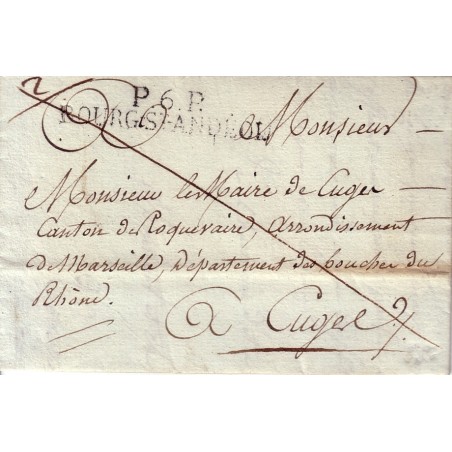 P. 6. P.
BOURG-ST-ANDÉOL
Monsieur
Monsieur le Maire de Cuges
Canton de Roquevaire, Arrondissement
de Marseille, Département des bouches du
Rhône.
a Cuges